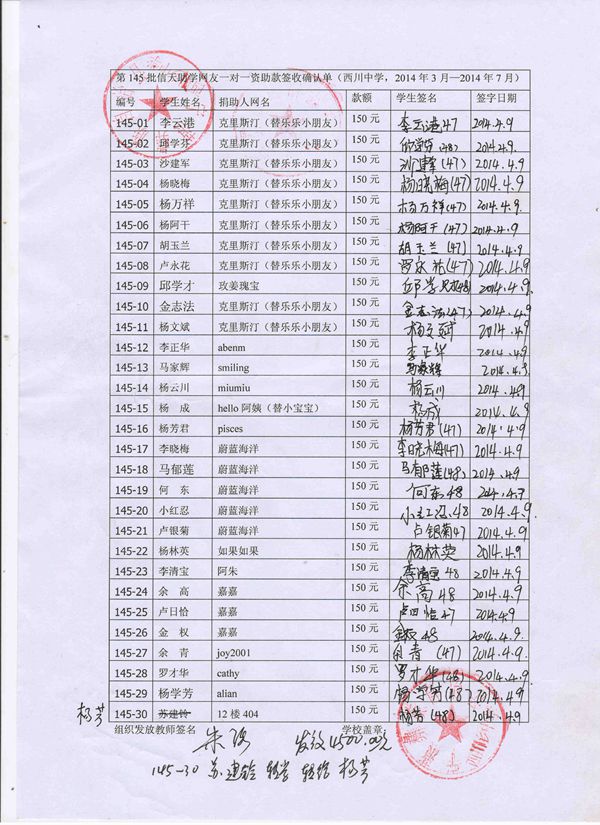 第145批信天助学网友一对一资助款签收确认单（西川中学，2014年3月—2014年7月）
编号 学生姓名 捐助人网名 款额 学生签名 签字日期
145-01 李云港 克里斯汀（替乐乐小朋友） 150元 李云港47 2014.4.9
145-02 邱学芬 克里斯汀（替乐乐小朋友） 150元 邱学芬(48) 2014.4.9
145-03 沙建军 克里斯汀（替乐乐小朋友） 150元 沙建军(47) 2014.4.9
145-04 杨晓梅 克里斯汀（替乐乐小朋友） 150元 杨晓梅(47) 2014.4.9
145-05 杨万祥 克里斯汀（替乐乐小朋友） 150元 杨万祥(47) 2014.4.9
145-06 杨阿干 克里斯汀（替乐乐小朋友） 150元 杨阿干(47) 2014.4.9
145-07 胡玉兰 克里斯汀（替乐乐小朋友） 150元 胡玉兰(47) 2014.4.9
145-08 卢永花 克里斯汀（替乐乐小朋友） 150元 永花(47) 2014.4.9
145-09 邱学才 玫姜瑰宝 150元 邱学才(48) 2014.4.9
145-10 金志法 克里斯汀（替乐乐小朋友） 150元 金志法(47) 2014.4.9
145-11 杨文斌 克里斯汀（替乐乐小朋友） 150元 杨文斌 2014.4.9
145-12 李正华 abenm 150元 李正华 2014.4.9
145-13 马家辉 smiling 150元 马家辉 2014.4.9
145-14 杨云川 miumiu 150元 杨云川 2014.4.9
145-15 杨 成 hello阿姨（替小宝宝） 150元 杨成 2014.4.9
145-16 杨芳君 pisces 150元 杨芳君(47) 2014.4.9
145-17 李晓梅 蔚蓝海洋 150元 李晓梅(47) 2014.4.9
145-18 马郁莲 蔚蓝海洋 150元 马郁莲(48) 2014.4.9
145-19 何 东 蔚蓝海洋 150元 何东48 2014.4.9
145-20 小红忍 蔚蓝海洋 150元 小红忍48 2014.4.9
145-21 卢银菊 蔚蓝海洋 150元 卢银菊47 2014.4.9
145-22 杨林英 如果如果 150元 杨林英 2014.4.9
145-23 李清宝 阿朱 150元 李清宝48 2014.4.9
145-24 余 高 嘉嘉 150元 余高48 2014.4.9
145-25 卢日恰 嘉嘉 150元 卢日恰47 2014.4.9
145-26 金 权 嘉嘉 150元 金权48 2014.4.9
145-27 余 青 joy2001 150元 余青(47) 2014.4.9
145-28 罗才华 cathy 150元 罗才华(48) 2014.4.9
145-29 杨学芳 alian 150元 杨学芳(48) 2014.4.9
杨芳 145-30 苏建铃 12楼404 150元 杨芳(48) 2014.4.9
组织发放教师签名 学校盖章
朱 发放4500.00元
145-30 苏建铃 转给 杨芳